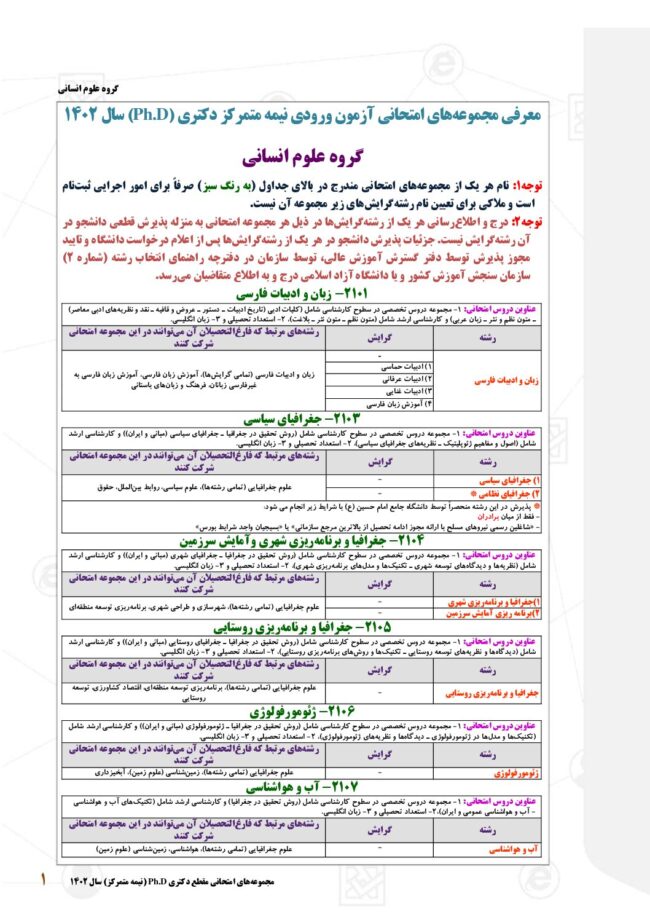 گروه علوم انسانی
معرفی مجموعه‌های امتحانی آزمون ورودی نیمه متمرکز دکتری (Ph.D) سال ۱۴۰۲
گروه علوم انسانی
توجه۱: نام هر یک از مجموعه‌های امتحانی مندرج در بالای جداول (به رنگ سبز) صرفاً برای امور اجرایی ثبت‌نام
است و ملاکی برای تعیین نام رشته‌گرایش‌های زیر مجموعه آن نیست.
توجه۲: درج و اطلاع‌رسانی هر یک از رشته‌گرایش‌ها در ذیل هر مجموعه امتحانی به منزله پذیرش قطعی دانشجو در
آن رشته‌گرایش نیست. جزئیات پذیرش دانشجو در هر یک از رشته‌گرایش‌ها پس از اعلام درخواست دانشگاه و تایید
مجوز پذیرش توسط دفتر گسترش آموزش عالی، توسط سازمان در دفترچه راهنمای انتخاب رشته (شماره ۲)
سازمان سنجش آموزش کشور و یا دانشگاه آزاد اسلامی درج و به اطلاع متقاضیان می‌رسد.
۲۱۰۱- زبان و ادبیات فارسی
عناوین دروس امتحانی: ۱- مجموعه دروس تخصصی در سطوح کارشناسی شامل (کلیات ادبی (تاریخ ادبیات ـ دستور ـ عروض و قافیه ـ نقد و نظریه‌های ادبی معاصر)
ـ متون نظم و نثر ـ زبان عربی) و کارشناسی ارشد شامل (متون نظم ـ متون نثر ـ بلاغت)، ۲- استعداد تحصیلی و ۳- زبان انگلیسی.
رشته گرایش رشته‌های مرتبط که فارغ‌التحصیلان آن می‌توانند در این مجموعه امتحانی
شرکت کنند
زبان و ادبیات فارسی
-
۱) ادبیات حماسی
۲) ادبیات عرفانی
۳) ادبیات غنایی
۴) آموزش زبان فارسی
زبان و ادبیات فارسی (تمامی گرایش‌ها)، آموزش زبان فارسی، آموزش زبان فارسی به
غیرفارسی زبانان، فرهنگ و زبان‌های باستانی
۲۱۰۳- جغرافیای سیاسی
عناوین دروس امتحانی: ۱- مجموعه دروس تخصصی در سطوح کارشناسی شامل (روش تحقیق در جغرافیا ـ جغرافیای سیاسی (مبانی و ایران)) و کارشناسی ارشد
شامل (اصول و مفاهیم ژئوپلیتیک ـ نظریه‌های جغرافیای سیاسی)، ۲- استعداد تحصیلی و ۳- زبان انگلیسی.
رشته گرایش رشته‌های مرتبط که فارغ‌التحصیلان آن می‌توانند در این مجموعه امتحانی
شرکت کنند
۱) جغرافیای سیاسی -
۲) جغرافیای نظامی * -
علوم جغرافیایی (تمامی رشته‌ها)، علوم سیاسی، روابط بین‌الملل، حقوق
* پذیرش در این رشته منحصراً توسط دانشگاه جامع امام حسین (ع) با شرایط زیر انجام می شود:
- فقط از میان برادران
- «شاغلین رسمی نیروهای مسلح با ارائه مجوز ادامه تحصیل از بالاترین مرجع سازمانی» یا «بسیجیان واجد شرایط بورس»
۲۱۰۴- جغرافیا و برنامه‌ریزی شهری وآمایش سرزمین
عناوین دروس امتحانی: ۱- مجموعه دروس تخصصی در سطوح کارشناسی شامل (روش تحقیق در جغرافیا ـ جغرافیای شهری (مبانی و ایران)) و کارشناسی ارشد
شامل (نظریه‌ها و دیدگاه‌های توسعه شهری ـ تکنیک‌ها و مدل‌های برنامه‌ریزی شهری)، ۲- استعداد تحصیلی و ۳- زبان انگلیسی.
رشته گرایش رشته‌های مرتبط که فارغ‌التحصیلان آن می‌توانند در این مجموعه امتحانی
شرکت کنند
۱)جغرافیا و برنامه‌ریزی شهری -
۲)برنامه ریزی آمایش سرزمین -
علوم جغرافیایی (تمامی رشته‌ها)، شهرسازی و طراحی شهری، برنامه‌ریزی توسعه منطقه‌ای
۲۱۰۵- جغرافیا و برنامه‌ریزی روستایی
عناوین دروس امتحانی: ۱- مجموعه دروس تخصصی در سطوح کارشناسی شامل (روش تحقیق در جغرافیا ـ جغرافیای روستایی (مبانی و ایران)) و کارشناسی ارشد
شامل (دیدگاه‌ها و نظریه‌های توسعه روستایی ـ تکنیک‌ها و روش‌های برنامه‌ریزی روستایی)، ۲- استعداد تحصیلی و ۳- زبان انگلیسی.
رشته گرایش رشته‌های مرتبط که فارغ‌التحصیلان آن می‌توانند در این مجموعه امتحانی
شرکت کنند
جغرافیا و برنامه‌ریزی روستایی - علوم جغرافیایی (تمامی رشته‌ها)، برنامه‌ریزی توسعه منطقه‌ای، اقتصاد کشاورزی، توسعه
روستایی
۲۱۰۶- ژئومورفولوژی
عناوین دروس امتحانی: ۱- مجموعه دروس تخصصی در سطوح کارشناسی شامل (روش تحقیق در جغرافیا ـ ژئومورفولوژی (مبانی و ایران)) و کارشناسی ارشد شامل
(تکنیک‌ها و مدل‌ها در ژئومورفولوژی ـ دیدگاه‌ها و نظریه‌های ژئومورفولوژی)، ۲- استعداد تحصیلی و ۳- زبان انگلیسی.
رشته گرایش رشته‌های مرتبط که فارغ‌التحصیلان آن می‌توانند در این مجموعه امتحانی
شرکت کنند
ژئومورفولوژی - علوم جغرافیایی (تمامی رشته‌ها)، زمین‌شناسی (علوم زمین)، آبخیزداری
۲۱۰۷- آب و هواشناسی
عناوین دروس امتحانی: ۱- مجموعه دروس تخصصی در سطوح کارشناسی شامل (روش تحقیق در جغرافیا) و کارشناسی ارشد شامل (تکنیک‌های آب و هواشناسی
- آب و هواشناسی عمومی و ایران)،۲- استعداد تحصیلی و ۳- زبان انگلیسی.
رشته گرایش رشته‌های مرتبط که فارغ‌التحصیلان آن می‌توانند در این مجموعه امتحانی
شرکت کنند
آب و هواشناسی - علوم جغرافیایی (تمامی رشته‌ها)، هواشناسی، زمین‌شناسی (علوم زمین)
مجموعه‌های امتحانی مقطع دکتری Ph.D (نیمه متمرکز) سال ۱۴۰۲
۱